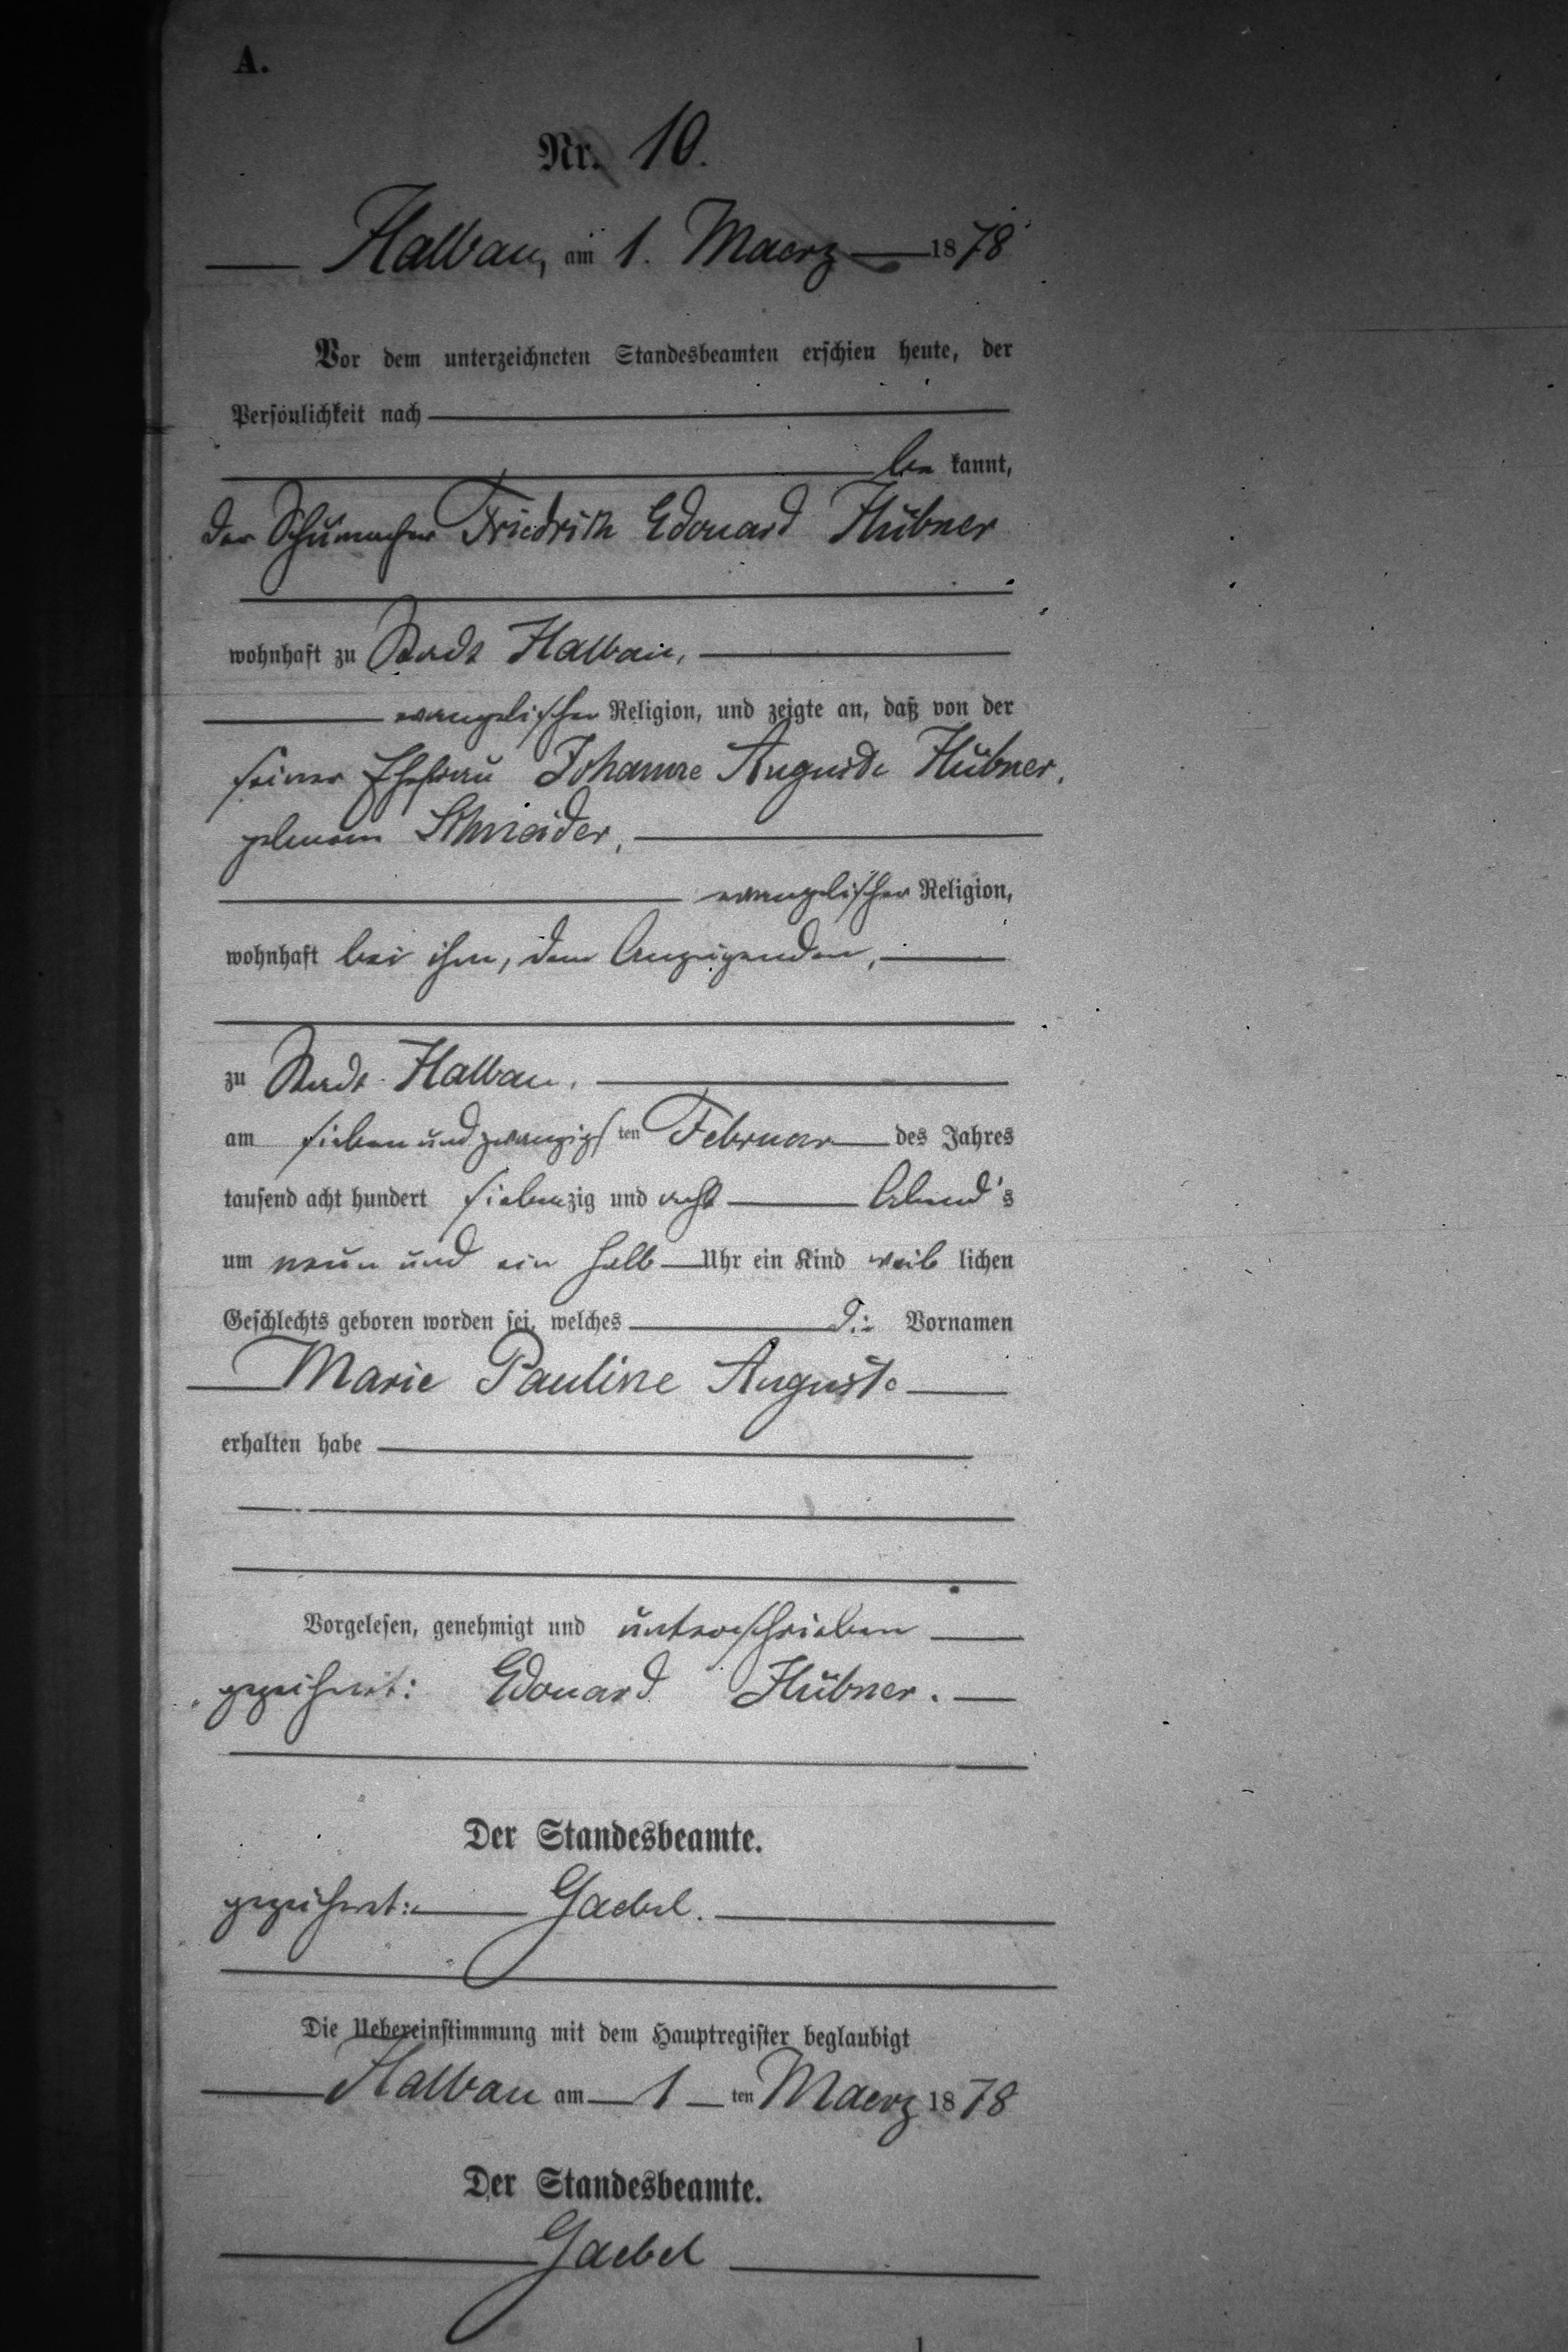 A.
Nr. 10.
Halbau, am 1. Maerz 1878
Vor dem unterzeichneten Standesbeamten erschien heute, der
Persönlichkeit nach
be kannt,
der Schumacher Friedrich Edouard Hübner
wohnhaft zu Stadt Halbau,
evangelischer Religion, und zeigte an, daß von der
seiner Ehefrau Johanne Auguste Hübner,
geborenen Schneider,
evangelischer Religion,
wohnhaft bei ihm, dem Anzeigenden,
zu Stadt Halbau,
am sieben und zwanzigsten Februar des Jahres
tausend acht hundert siebenzig und acht Abend's
um neun und ein halb Uhr ein Kind weiblichen
Geschlechts geboren worden sei, welches die Vornamen
Marie Pauline Auguste
erhalten habe
Vorgelesen, genehmigt und unterschrieben
gezeichnet: Edouard Hübner.
Der Standesbeamte.
gezeichnet: Gaebel.
Die Uebereinstimmung mit dem Hauptregister beglaubigt
Halbau am 1 ten Maerz 1878
Der Standesbeamte.
Gaebel
1